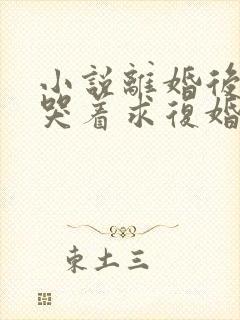 小説離婚後
哭着求復婚
東土三